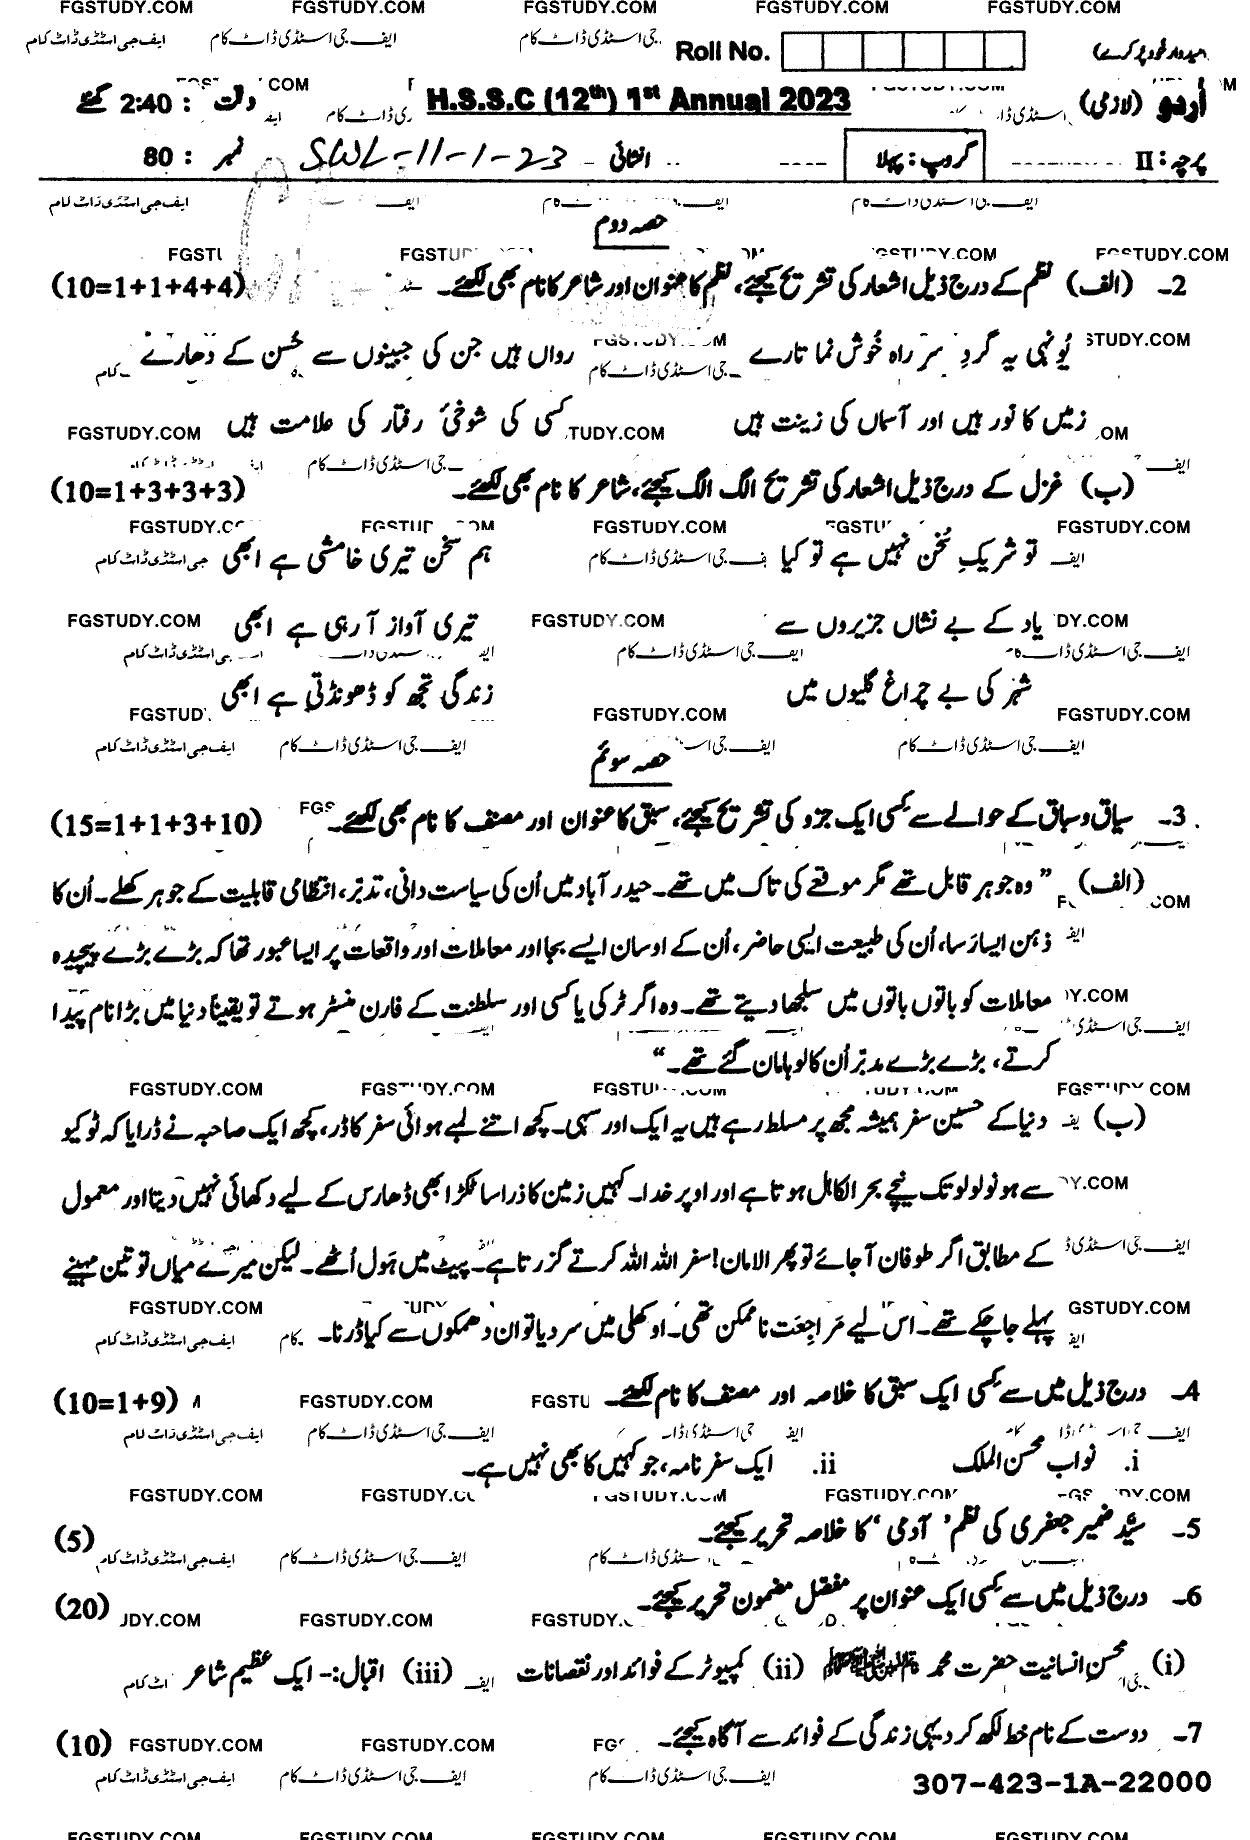 FGSTUDY.COM FGSTUDY.COM FGSTUDY.COM FGSTUDY.COM FGSTUDY.COM
Roll No.
اُردو (لازمی) H.S.S.C (12th) 1st Annual 2023 وقت : 2:40 گھنٹے
پرچہ : II گروپ : پہلا انشائی SWL-11-1-23 نمبر : 80
حصہ دوم
2۔ (الف) نظم کے درج ذیل اشعار کی تشریح کیجئے، نظم کا عنوان اور شاعر کا نام بھی لکھئے۔ (10=1+1+4+4)
یُونہی یہ گردِ سرِ راہ خُوش نما تارے رواں ہیں جن کی جبینوں سے حُسن کے دھارے
زمیں کا نور ہیں اور آسماں کی زینت ہیں کسی کی شوخیٔ رفتار کی علامت ہیں
(ب) غزل کے درج ذیل اشعار کی تشریح الگ الگ کیجئے، شاعر کا نام بھی لکھئے۔ (10=1+3+3+3)
تو شریکِ سُخن نہیں ہے تو کیا ہم سخن تیری خامشی ہے ابھی
یاد کے بے نشاں جزیروں سے تیری آواز آ رہی ہے ابھی
شہر کی بے چراغ گلیوں میں زندگی تجھ کو ڈھونڈتی ہے ابھی
حصہ سوئم
3۔ سیاق و سباق کے حوالے سے کسی ایک جزو کی تشریح کیجئے، سبق کا عنوان اور مصنف کا نام بھی لکھئے۔ (15=1+1+3+10)
(الف) ” وہ جوہر قابل تھے مگر موقعے کی تاک میں تھے۔ حیدر آباد میں اُن کی سیاست دانی، تدبّر، انتظامی قابلیت کے جوہر کھلے۔ اُن کا
ذہن ایسا رَسا، اُن کی طبیعت ایسی حاضر، اُن کے اوسان ایسے بجا اور معاملات اور واقعات پر ایسا عبور تھا کہ بڑے بڑے پیچیدہ
معاملات کو باتوں باتوں میں سلجھا دیتے تھے۔ وہ اگر ٹرکی یا کسی اور سلطنت کے فارن منسٹر ہوتے تو یقیناً دنیا میں بڑا نام پیدا
کرتے، بڑے بڑے مدبّر اُن کا لوہا مان گئے تھے۔“
(ب) دنیا کے حسین سفر ہمیشہ مجھ پر مسلط رہے ہیں یہ ایک اور سہی۔ کچھ اتنے لمبے ہوائی سفر کا ڈر، کچھ ایک صاحبہ نے ڈرایا کہ ٹوکیو
سے ہونولولو تک نیچے بحر الکاہل ہوتا ہے اور اوپر خدا۔ کہیں زمین کا ذرا سا ٹکڑا بھی ڈھارس کے لیے دکھائی نہیں دیتا اور معمول
کے مطابق اگر طوفان آ جائے تو پھر الامان! سفر اللہ اللہ کرتے گزرتا ہے۔ پیٹ میں ہَول اُٹھے۔ لیکن میرے میاں تو تین مہینے
پہلے جا چکے تھے۔ اس لیے مَراجعَت نا ممکن تھی۔ اوکھلی میں سر دیا تو ان دھمکوں سے کیا ڈرنا۔
4۔ درج ذیل میں سے کسی ایک سبق کا خلاصہ اور مصنف کا نام لکھئے۔ (10=1+9)
i. نواب محسن الملک ii. ایک سفر نامہ، جو کہیں کا بھی نہیں ہے۔
5۔ سیّد ضمیر جعفری کی نظم ’ آدمی ‘ کا خلاصہ تحریر کیجئے۔ (5)
6۔ درج ذیل میں سے کسی ایک عنوان پر مفصّل مضمون تحریر کیجئے۔ (20)
(i) محسنِ انسانیت حضرت محمد ﷺ (ii) کمپیوٹر کے فوائد اور نقصانات (iii) اقبال:- ایک عظیم شاعر
7۔ دوست کے نام خط لکھ کر دیہی زندگی کے فوائد سے آگاہ کیجئے۔ (10)
307-423-1A-22000
FGSTUDY.COM FGSTUDY.COM FGSTUDY.COM FGSTUDY.COM FGSTUDY.COM